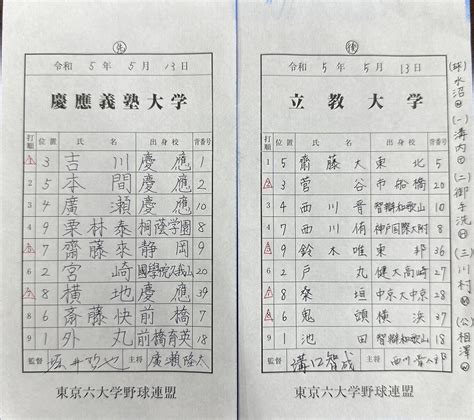 先
令和 5年 5月 13日
慶應義塾大学
打順 位置 氏名 出身校 背番号
1 3 吉川 慶應 1
2 5 本間 慶應 2
3 4 廣瀬 慶應 10
4 9 栗林泰 桐蔭学園 8
5 7 齋藤來 静岡 9
6 2 宮崎 國學院久我山 20
7 8 横地 慶應 39
8 6 斎藤快 前橋 7
9 1 外丸 前橋育英 18
監督 主将 廣瀬隆太
東京六大学野球連盟
後
令和 5年 5月 13日
立教大学
打順 位置 氏名 出身校 背番号
1 5 齋藤大 東北 5
2 3 菅谷 市船橋 20
3 4 西川晋 智辯和歌山 10
4 7 西川侑 神戸国際大附 8
5 9 鈴木唯 東邦 36
6 2 戸丸 健大高崎 27
7 8 桑垣 中京大中京 28
8 6 鬼頭 横浜 37
9 1 池田 智辯和歌山 18
監督 溝口智成 主将
東京六大学野球連盟
(球)水沼 (一)溝内 (二)御手洗 (三)川村 (公)相澤